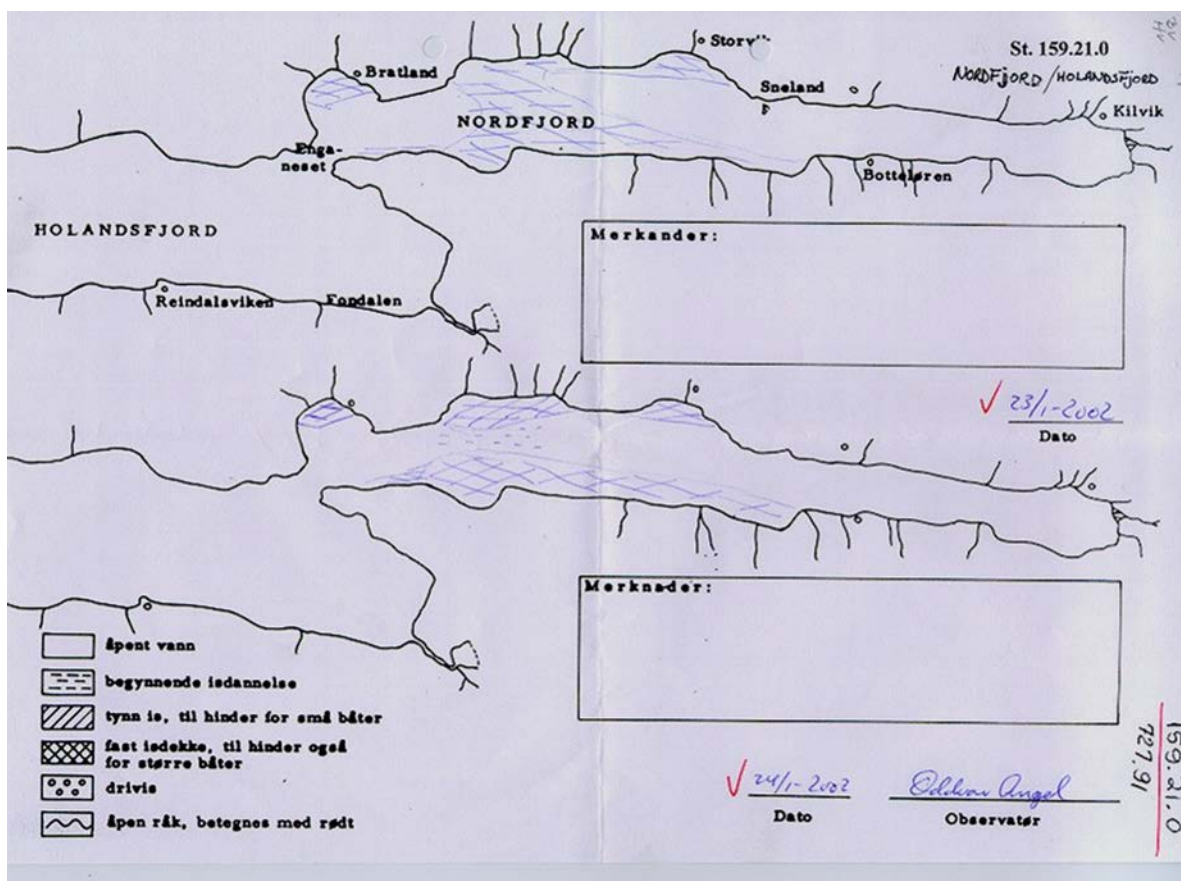 St. 159.21.0
NORDFJORD/HOLANDSFJORD
Storvik
Bratland
Sneland
Kilvik
NORDFJORD
Enga-
neset
Botteløren
HOLANDSFJORD
Merkander:
Reindalsviken
Fondalen
23/1-2002
Dato
Merknader:
åpent vann
begynnende isdannelse
tynn is, til hinder for små båter
fast isdekke, til hinder også
for større båter
drivis
åpen råk, betegnes med rødt
24/1-2002
Dato
Oddvar Angel
Observatør
159.21.0
727.91